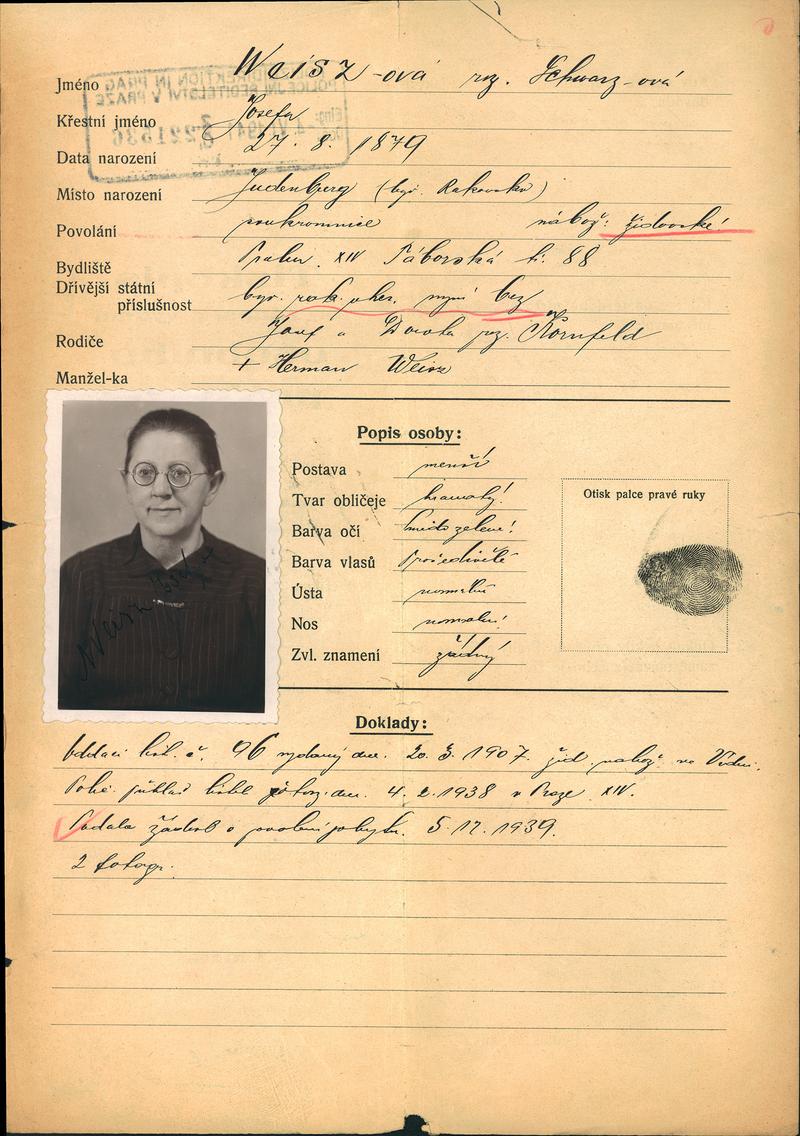 Jméno Weisz-ová roz. Schwarz-ová
Křestní jméno Josefa
Data narození 27. 8. 1879
Místo narození Judenburg (býv. Rakousko)
Povolání soukromnice nábož: židovské!
Bydliště Praha XIV Táborská č. 88
Dřívější státní
příslušnost býv. rak. nyní bez
Rodiče Josef a roz. Kornfeld
Manžel-ka + Herman Weisz
Popis osoby:
Postava menší
Tvar obličeje hranatý!
Barva očí zelené!
Barva vlasů prošedivělé
Ústa normální
Nos normální!
Zvl. znamení žádný
Otisk palce pravé ruky
Weisz Josefa
Doklady:
Oddací list č. 96 vydaný dne 20. 3. 1907 žid. nábož. ve Vídni.
Polic. přihláš. 4. 2. 1938 v Praze XIV.
Podala žádost o povolení pobytu. 5. 12. 1939.
2 fotogr.